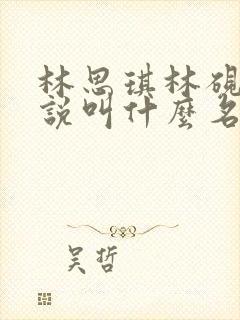 林思琪林硯
說叫什麼名
吳哲